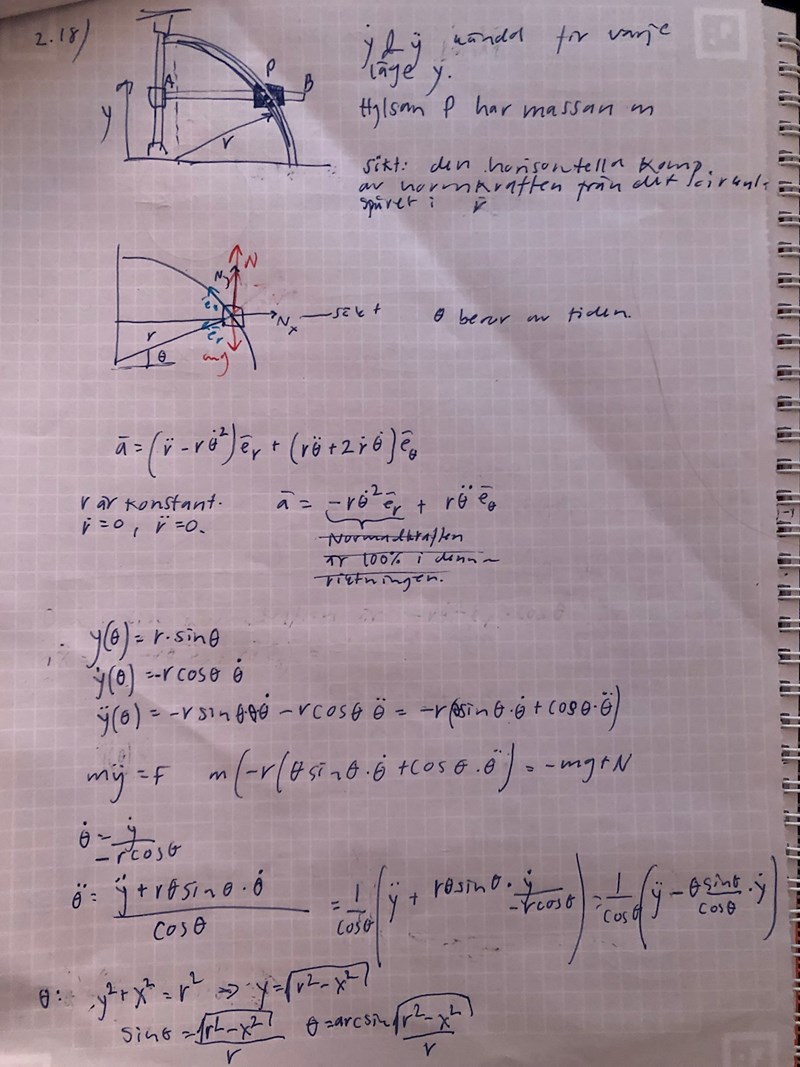 2.18)
ẏ & ÿ kända för varje
läge y.
A
P
B
y
r
Hylsan P har massan m
sökt: den horisontella komp.
av normkraften från det cirkul.
spåret i r̄
N
Ny
ēθ
Nx sökt
r
θ
ēr
mg
θ beror av tiden.
ā = (r̈ - rθ̇²)ēr + (rθ̈ + 2ṙθ̇)ēθ
r är konstant.
ṙ=0, r̈=0.
ā = -rθ̇²ēr + rθ̈ ēθ
Normalkraften
är 100% i denna
riktningen.
y(θ) = r·sinθ
ẏ(θ) = -r cosθ θ̇
ÿ(θ) = -r sinθ·θθ̇ - r cosθ θ̈ = -r(θsinθ·θ̇ + cosθ·θ̈)
mÿ = F m(-r(θsinθ·θ̇ + cosθ·θ̈)) = -mg+N
θ̇ = ẏ / -r cosθ
θ̈ = ÿ + rθsinθ·θ̇ / cosθ = 1/cosθ (ÿ + rθsinθ · ẏ / -r cosθ) = 1/cosθ (ÿ - θsinθ/cosθ · ẏ)
θ: y² + x² = r² ⇒ y = √(r² - x²)
sinθ = √(r² - x²) / r θ = arcsin √(r² - x²) / r